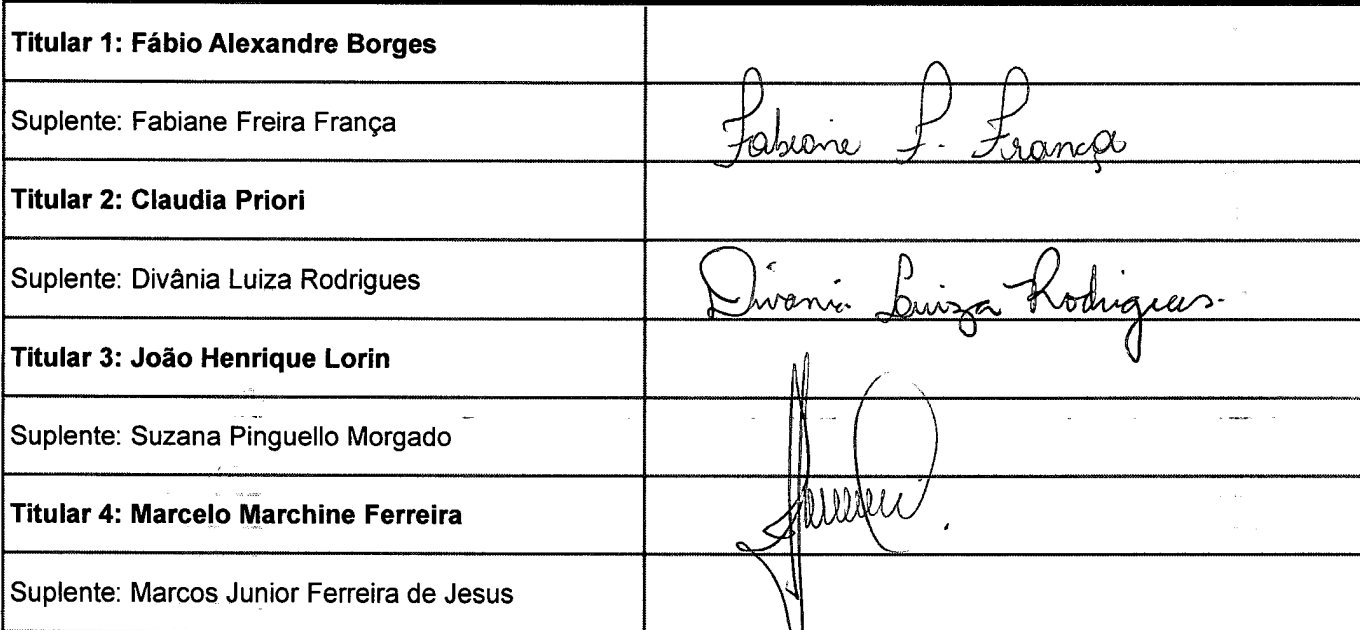 Titular 1: Fábio Alexandre Borges
Suplente: Fabiane Freira França
Fabiane F. França
Titular 2: Claudia Priori
Suplente: Divânia Luiza Rodrigues
Divania Luiza Rodrigues.
Titular 3: João Henrique Lorin
Suplente: Suzana Pinguello Morgado
Titular 4: Marcelo Marchine Ferreira
Suplente: Marcos Junior Ferreira de Jesus